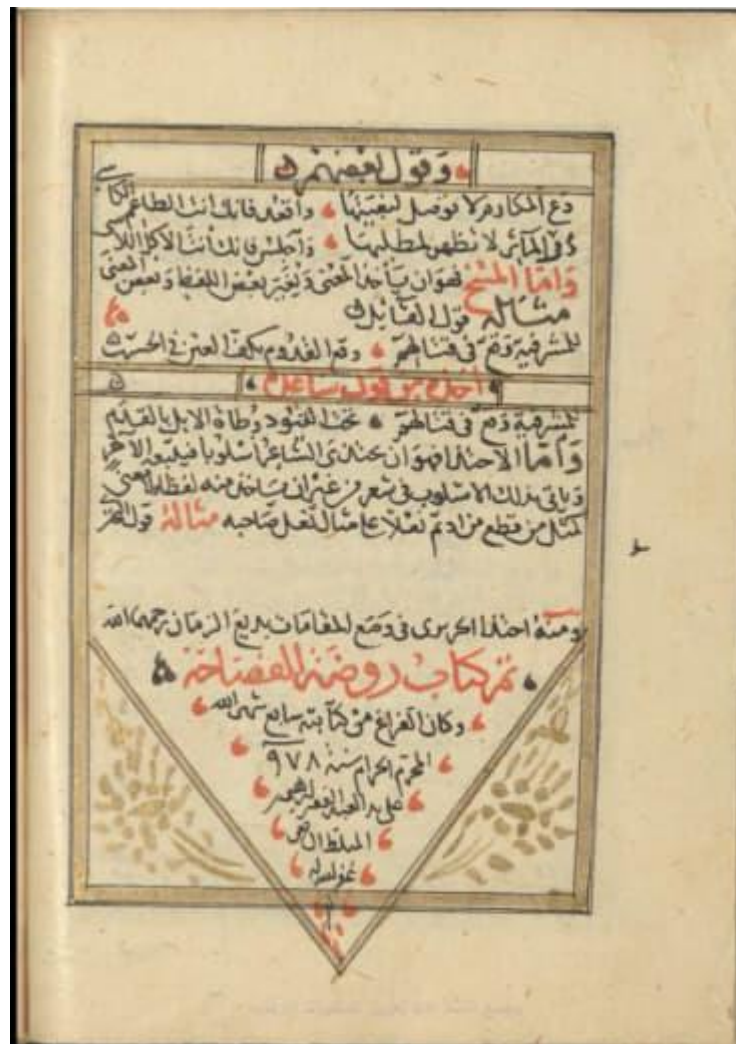 وقول بعضهم
دع المكارم لا توصل لبغيتها واقعد فانك انت الطاعم الكاسي
المآثر لا تظهر لمطلبها واجلس فانك انت الاكل اللابس
واما المسخ فهو ان يأخذ المعنى ويغير بعض اللفظ وبعض المعنى
مثاله قول القائل
للمشرفية وقع في قنا لهم وقع القدوم بكف في الخشب
اخذه من قول ساعدة
للمشرفية وقع في قنا لهم تحت وطاة الابل
واما الاحتذا فهو ان يبتدى الشاعر اسلوبا فيتبعه الآخر
وياتي بذلك الاسلوب في شعر من غير ان ياخذ منه لفظا او معنى
كمثل من قطع من ادم نعلا على مثال نعل صاحبه مثاله قول
ومنه احتذا الحريري في وضع المقامات بديع الزمان رحمهما الله
تم كتاب روضة الفصاحة
وكان الفراغ من كتابته سابع شهر الله
المحرم الحرام سنة ٩٧٨
على يد العبد الفقير ابراهيم
غفر له